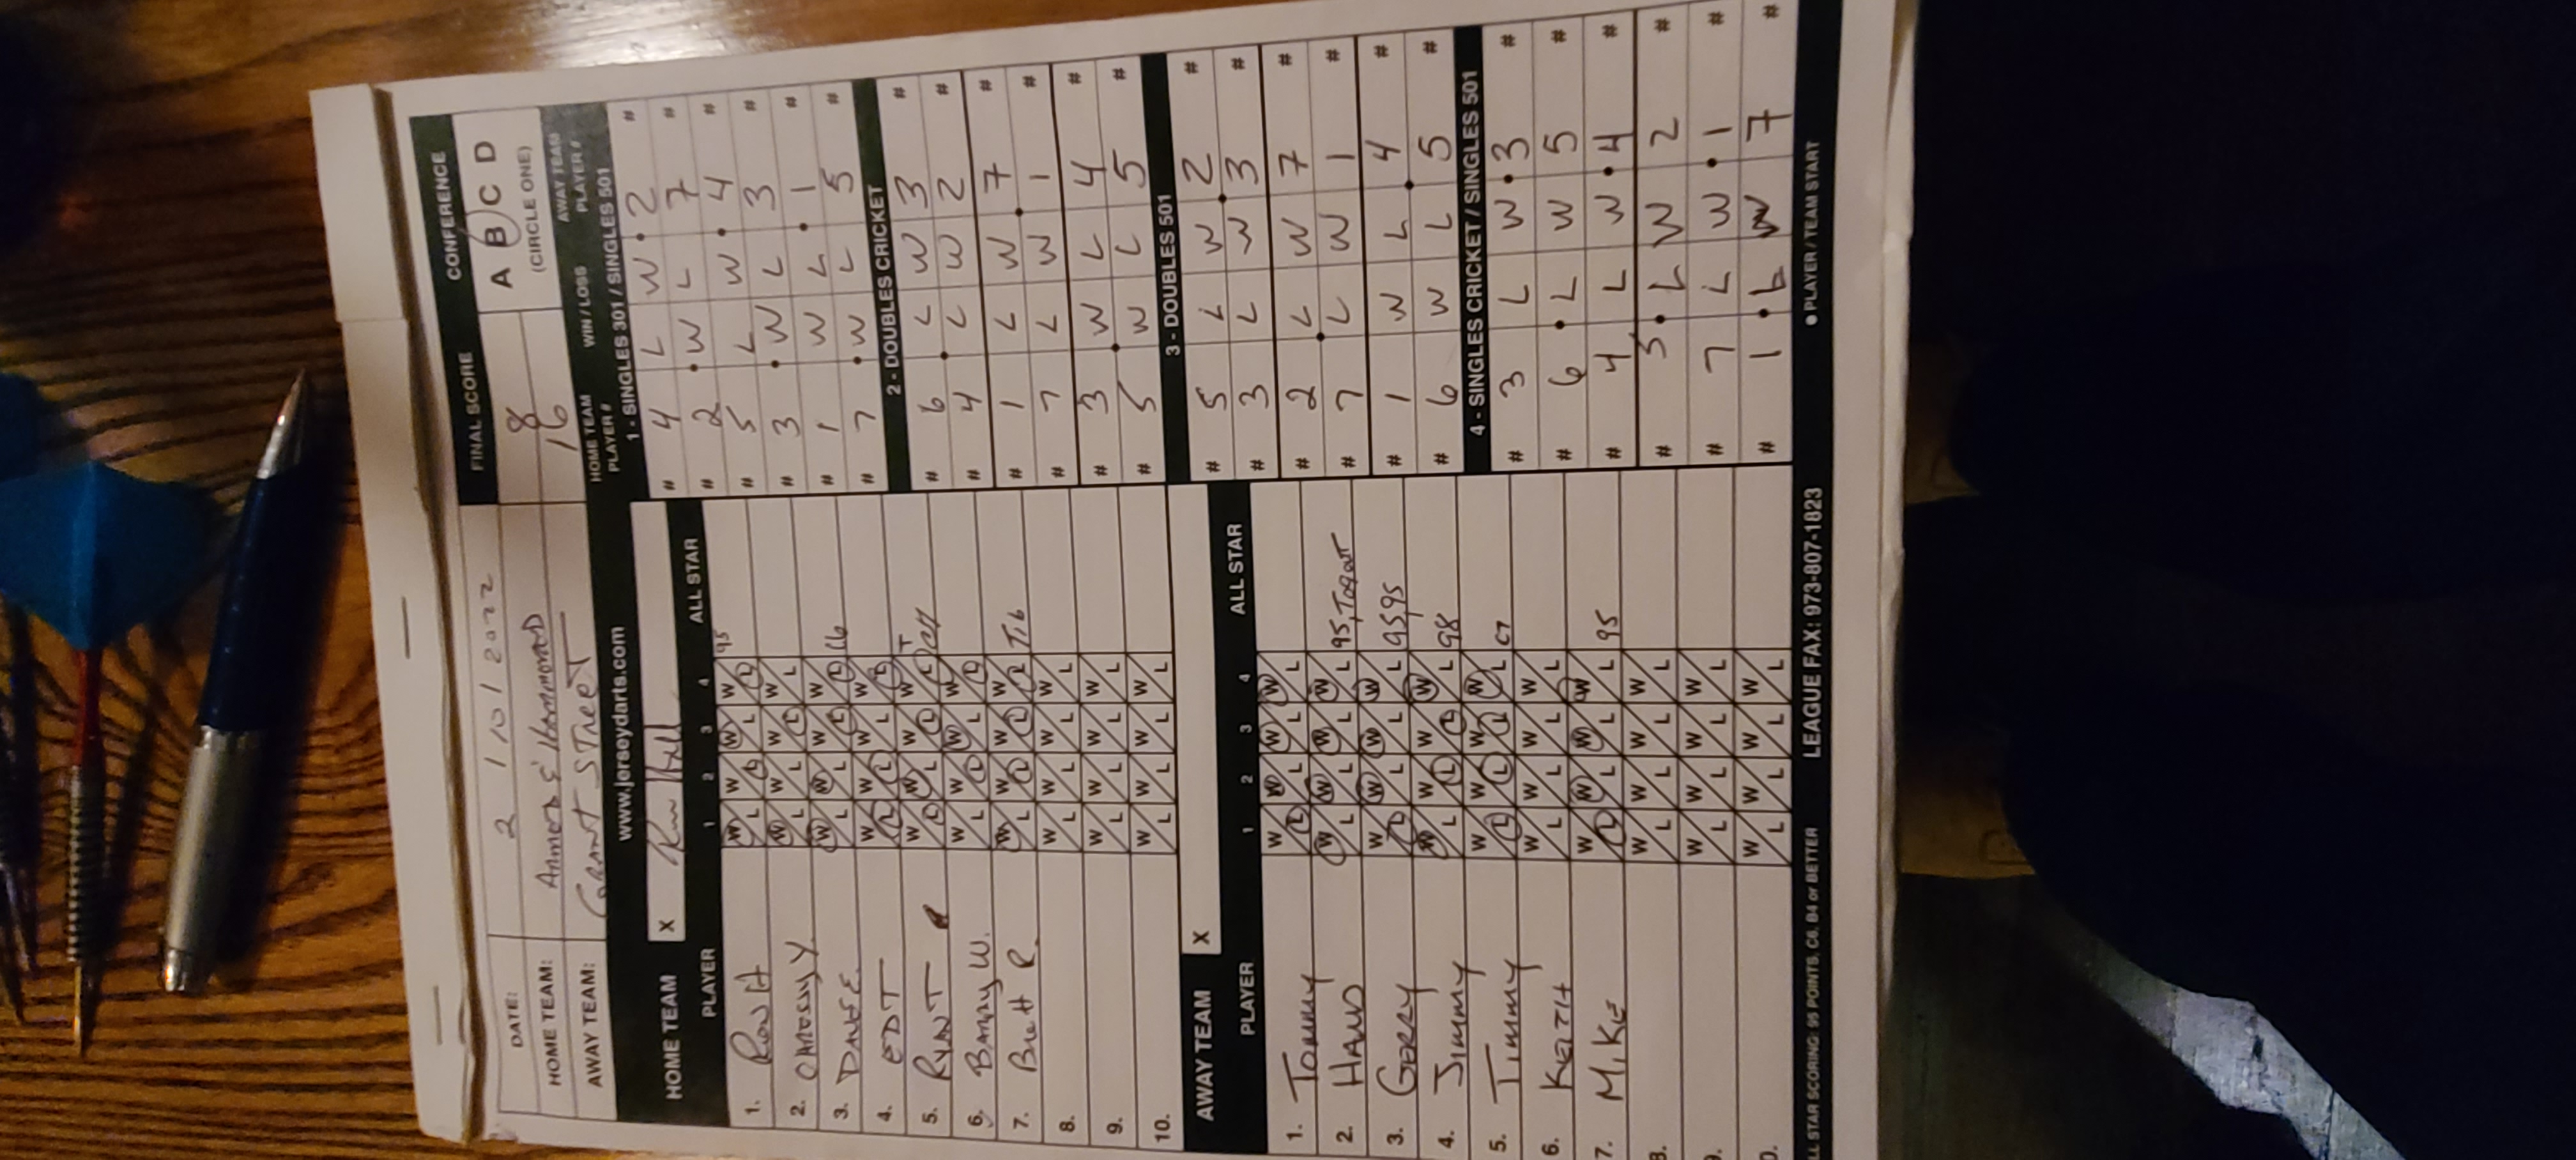 DATE: 2 / 10 / 2022
FINAL SCORE
CONFERENCE
HOME TEAM: 8
A B C D
AWAY TEAM: Grant STreeT 16
(CIRCLE ONE)
www.jerseydarts.com
HOME TEAM PLAYER # WIN / LOSS AWAY TEAM PLAYER #
1 - SINGLES 301 / SINGLES 501
# 4 L W 2 #
# 2 W L 7 #
# 5 L W 4 #
# 3 W L 3 #
# 1 W L 1 #
# 7 W L 5 #
2 - DOUBLES CRICKET
# 6 L W 3 #
# 4 L W 2 #
# 1 L W 7 #
# 7 L W 1 #
# 3 W L 4 #
# 5 W L 5 #
3 - DOUBLES 501
# 5 L W 2 #
# 3 L W 3 #
# 2 L W 7 #
# 7 L W 1 #
# 1 W L 4 #
# 6 W L 5 #
4 - SINGLES CRICKET / SINGLES 501
# 3 L W 3 #
# 6 L W 5 #
# 4 L W 4 #
# 5 L W 2 #
# 7 L W 1 #
# 1 L W 7 #
● PLAYER / TEAM START
HOME TEAM X
PLAYER 1 2 3 4 ALL STAR
1. Ron H W L W L W L W L 95
2. W L W L W L W L
3. Dave E. W L W L W L W L
4. EDT W L W L W L W L
5. RYANT W L W L W L W L
6. Barry W. W L W L W L W L
7. Brett R. W L W L W L W L
8. W L W L W L W L
9. W L W L W L W L
10. W L W L W L W L
AWAY TEAM X
PLAYER 1 2 3 4 ALL STAR
1. Tommy W L W L W L W L
2. HAND W L W L W L W L 95,
3. GERRY W L W L W L W L 95,95
4. Jimmy W L W L W L W L 98
5. Timmy W L W L W L W L
6. KEITH W L W L W L W L
7. MIKE W L W L W L W L 95
8. W L W L W L W L
9. W L W L W L W L
W L W L W L W L
LL STAR SCORING: 95 POINTS, C6, B4 or BETTER
LEAGUE FAX: 973-807-1823